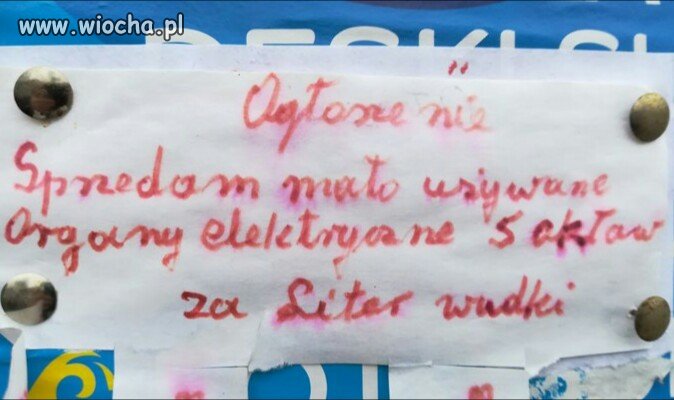 www.wiocha.pl
DESKI SU
Ogłoszenie
Sprzedam mało używane
Organy elektryczne 5 oktaw
za Liter wudki